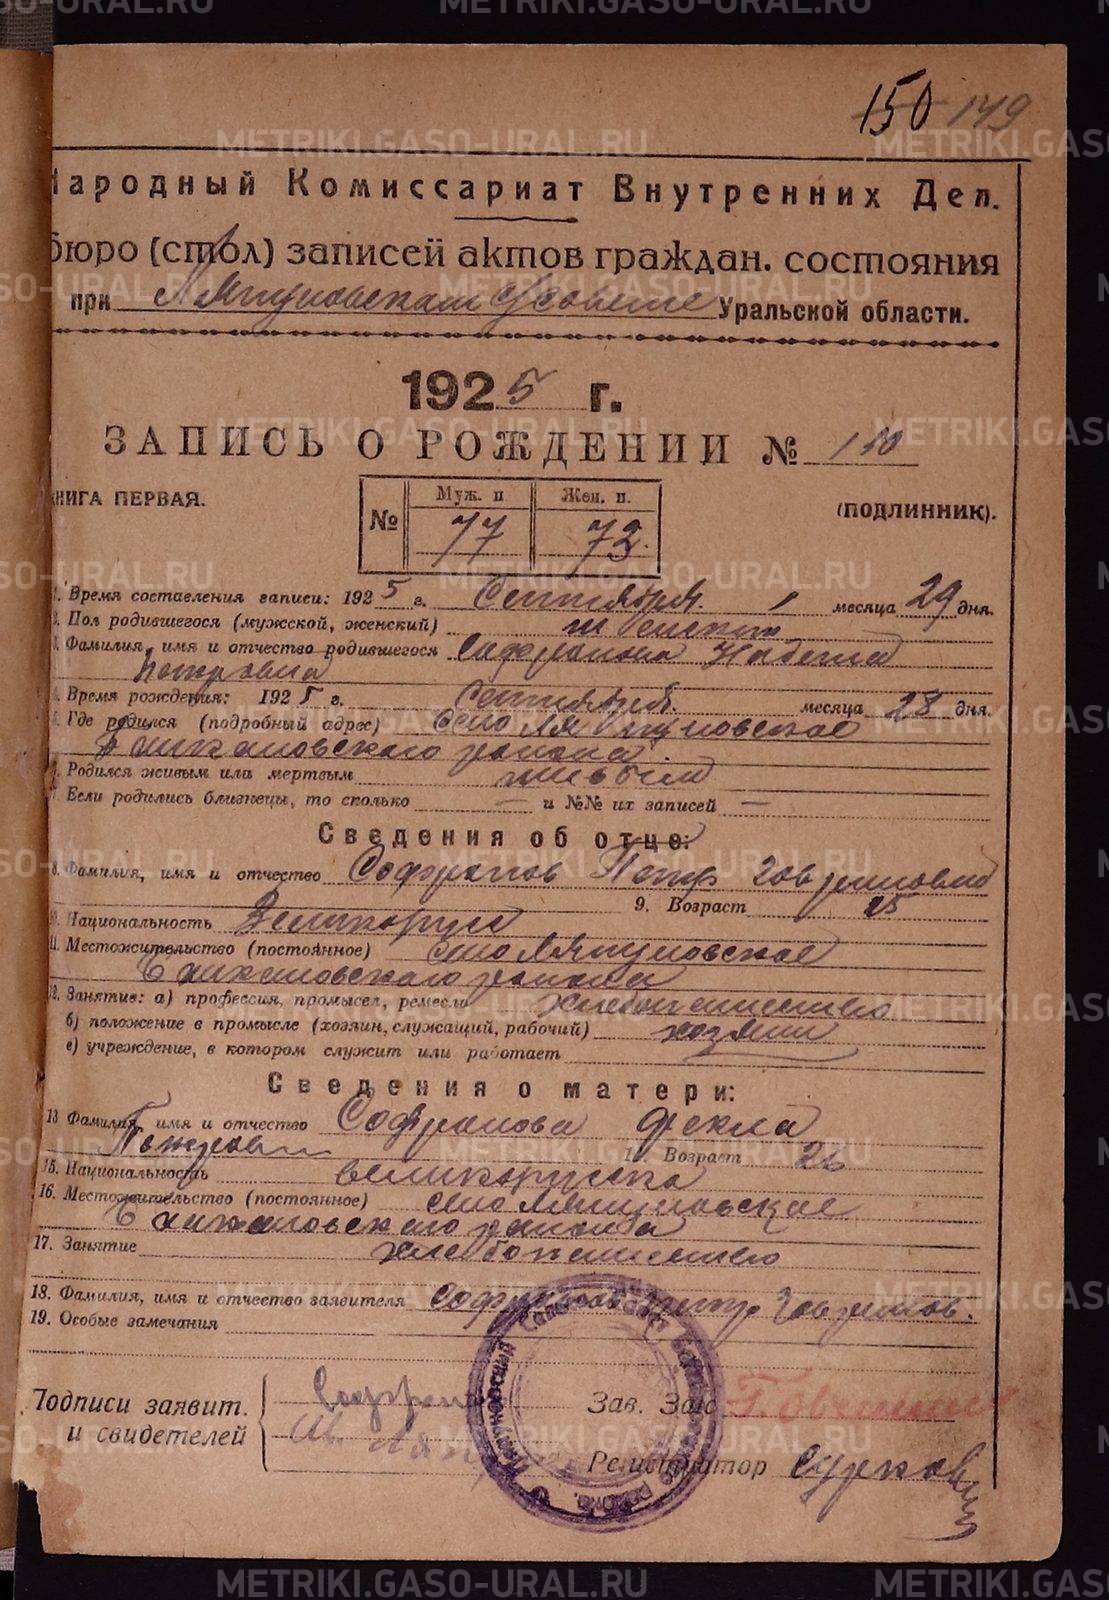 150 149
Народный Комиссариат Внутренних Дел.
бюро (стол) записей актов граждан. состояния
при Ляпуновском с/совете Уральской области.
1925 г.
ЗАПИСЬ О РОЖДЕНИИ № 150
КНИГА ПЕРВАЯ.
(ПОДЛИННИК).
№ Муж. п Жен. п.
77 73.
1. Время составления записи: 1925 г. Сентября месяца 29 дня.
2. Пол родившегося (мужской, женский) женский
3. Фамилия, имя и отчество родившегося Софронова
Петровна
4. Время рождения: 1925 г. Сентября месяца 28 дня.
5. Где родился (подробный адрес) село Ляпуновское
Еникановского района
6. Родился живым или мертвым живым
7. Если родились близнецы, то сколько — и №№ их записей —
Сведения об отце:
8. Фамилия, имя и отчество Софронов Петр Говрилович
9. Возраст 25
10. Национальность Великорус
11. Местожительство (постоянное) село Ляпуновское
района
12. Занятие: а) профессия, промысел, ремесло хлебопашество
б) положение в промысле (хозяин, служащий, рабочий) хозяин
в) учреждение, в котором служит или работает
Сведения о матери:
13 Фамилия, имя и отчество Софронова Фекла
14. Возраст 26
15. Национальность великоруска
16. Местожительство (постоянное) село Ляпуновское
района
17. Занятие хлебопашество
18. Фамилия, имя и отчество заявителя Софронов Петр Говрилов.
19. Особые замечания
Подписи заявит.
и свидетелей
Софрон
Зав. Заг
Регистратор Сурков